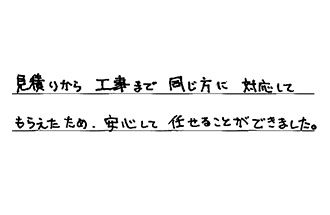 見積りから 工事まで 同じ方に 対応して
もらえたため、安心して 任せることができました。